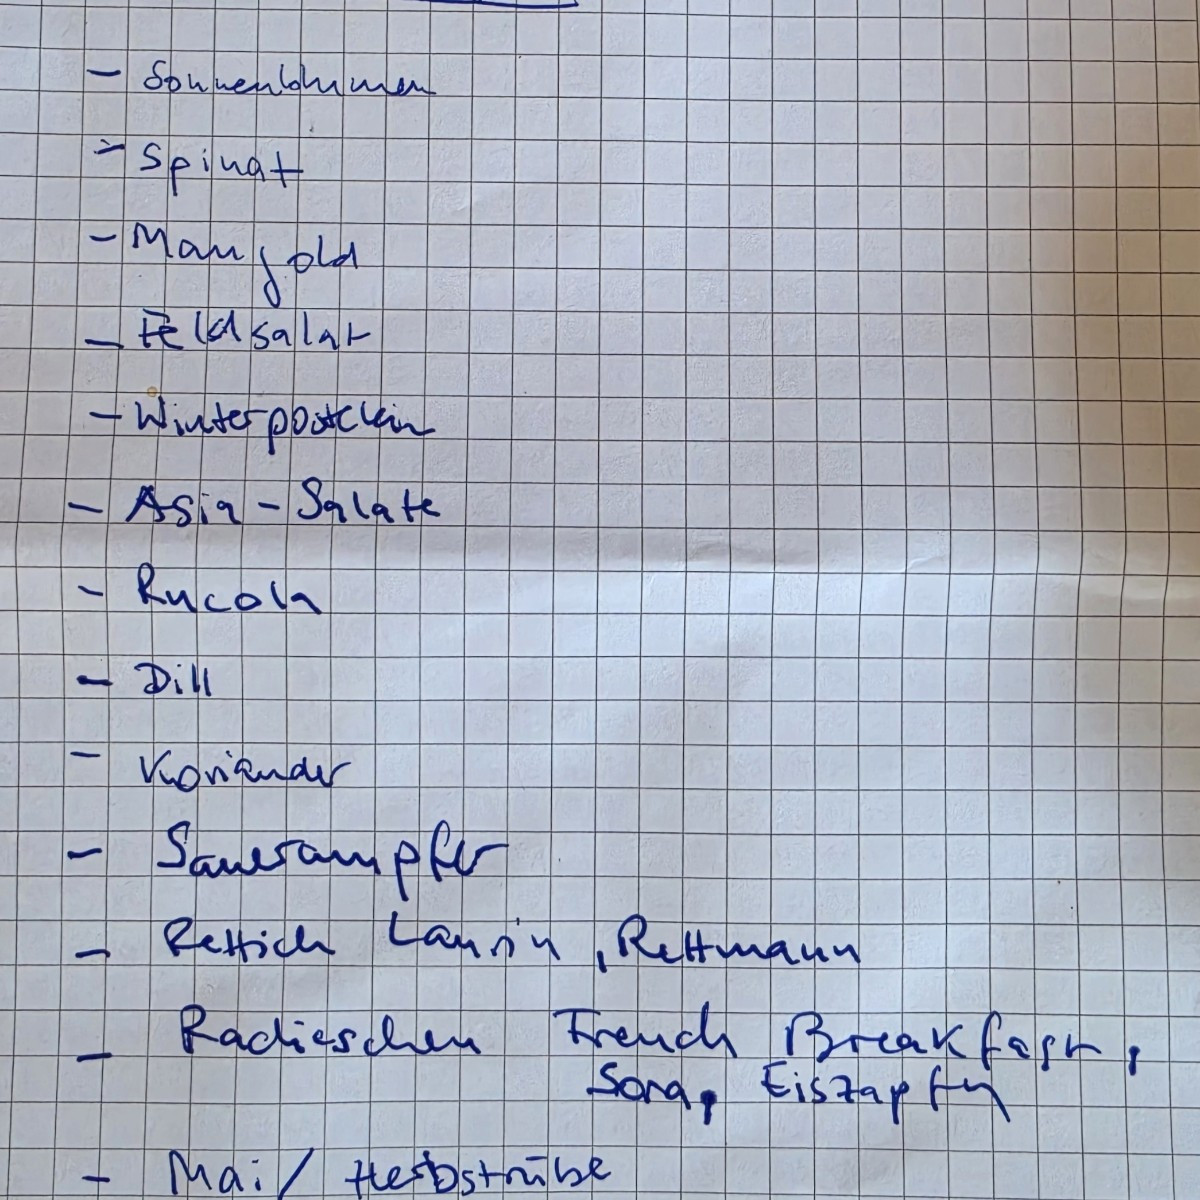 - Sonnenblumen
- Spinat
- Mangold
- Feldsalat
- Winterpostelein
- Asia-Salate
- Rucola
- Dill
- Koriander
- Sauerampfer
- Rettich Laurin, Rettmann
- Radieschen French Breakfast,
Sora, Eiszapfen
- Mai/Herbstrübe